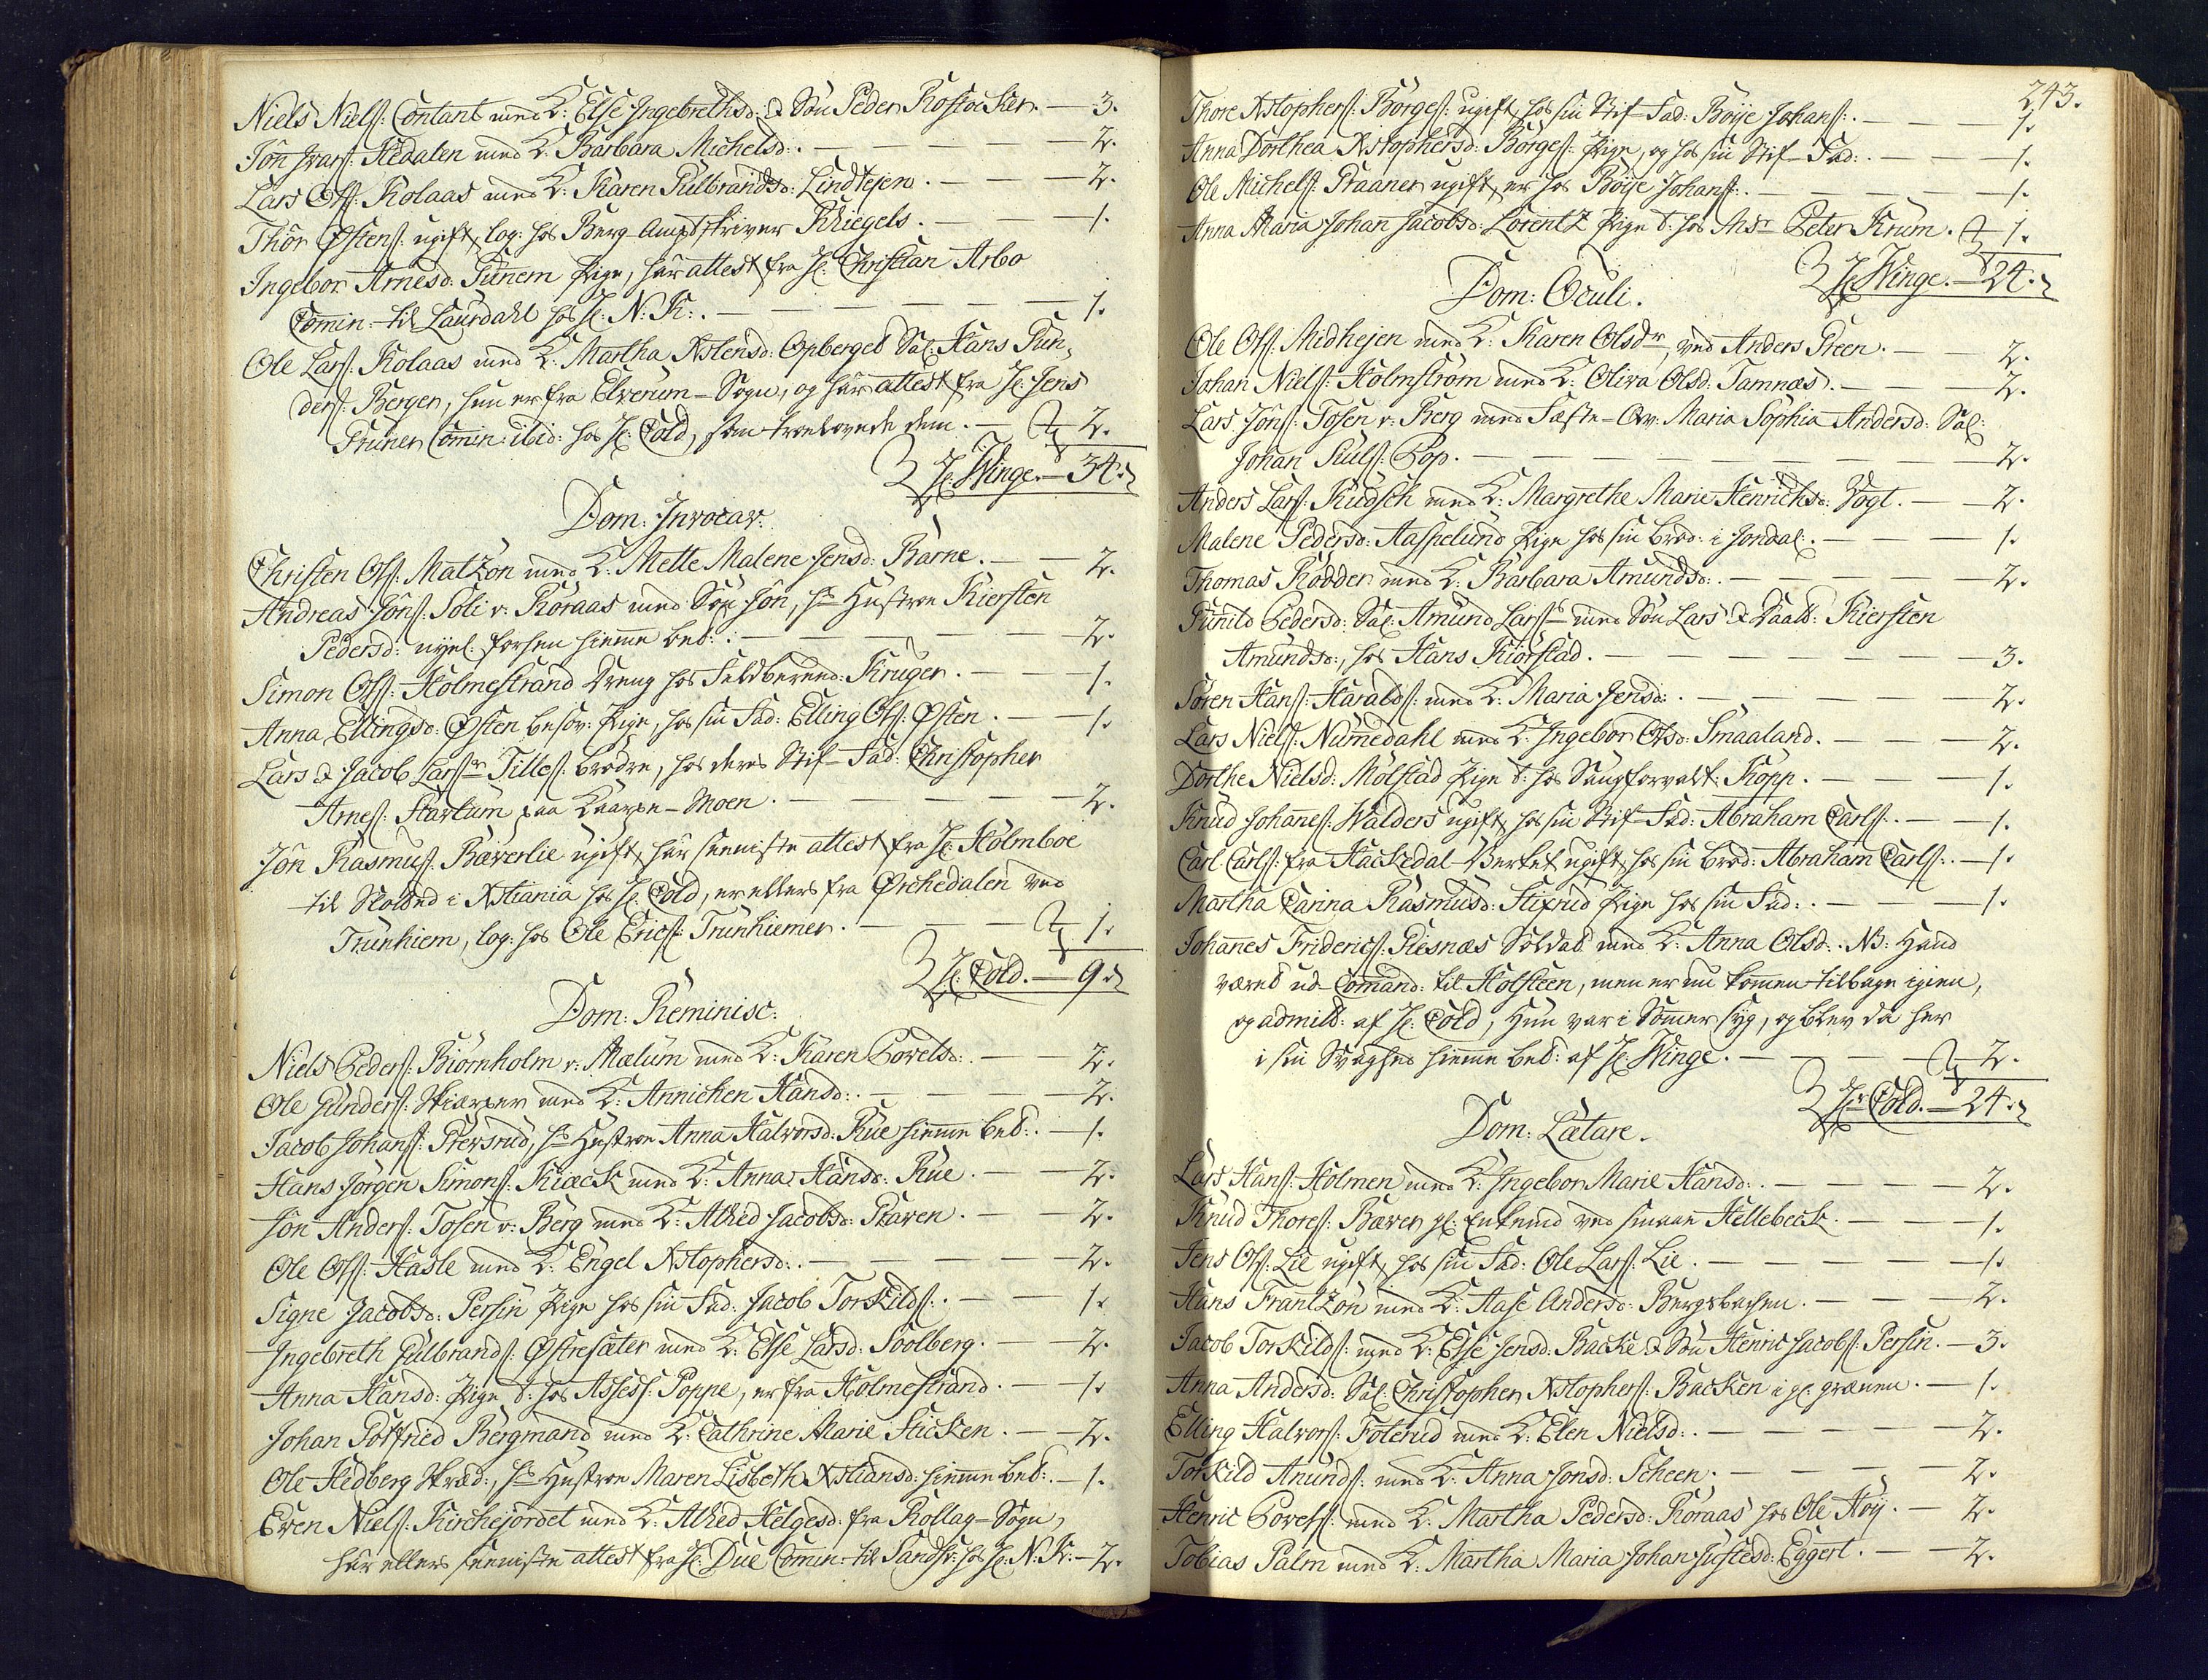 Niels Nielſ: Contant med K: Else Ingebrethsd: & Søn Peder Rostocker. — 3.
Jôn Ivarſ: Hedalen med K: Barbara Michelsd: — 2.
Lars Olſ: Kolaas med K: Karen Gulbrandsd: Lindtejen. — 2.
Thôr Østenſ: ugift, log: hos Berg-Ampdskriver Kriegels. — 1.
Ingebor Arnesd: Funem Pige, hâr attest fra H: Christian Arbo
Comin: til Laurdahl hos H: N: K: — 1.
Ole Larſ: Kolaas med K: Martha Xstensd: Opberget Sal: Hans Gun-
derſ: Bergen, hun er fra Elverum-Sogn, og hâr attest fra H: Jens
Gruner Comin: ibid: hos H: Cold, som trolovede dem. — 2.
H: Winge. — 34.
Dom: Invocav:
Christen Olſ: Matzôn med K: Mette Malene Jensd: Barne. — 2.
Andreas Jônſ: Soli v: Røraas med Søn Jôn, hs Hustroe Kiersten
Pedersd: nyel: forhen hiemme bet: — 2.
Simon Olſ: Holmestrand Dreng hos Feldberered: Kruger. — 1.
Anna Ellingsd: Østen besov: Pige, hos sin Fad: Elling Olſ: Østen. — 1.
Lars & Jacob Larſr Tilleſ: brødre, hos deres Stif-Fad: Christopher
Arneſ: Hartum paa Kaarse-Moen. — 2.
Jôn Rasmuſ: Bæverlie ugift, hâr seeniste attest fra H: Holmboe
til Slottet i Xstiania hos H: Cold, er ellers fra Ørchedalen ved
Trunhiem, log: hos Ole Ericſ: Trunhiemer. — 1.
H: Cold. — 9.
Dom: Reminisc:
Niels Pederſ: Biörnholm v: Mælum med K: Karen Povelsd: — 2.
Ole Gunderſ: Skiærper med K: Annichen Hansd: — 2.
Jacob Johanſ: Prersrud, hs Hustroe Anna Halvorsd: Rue hiemme bet: — 1.
Hans Jørgen Simonſ: Kiæck med K: Anna Hansd: Rue. — 2.
Jôn Anderſ: Tosen v: Berg med K: Alhed Jacobsd: Graven. — 2.
Ole Olſ: Hasle med K: Engel Xstophersd: — 2.
Signe Jacobsd: Persin Pige hos sin Fad: Jacob Torkildſ: — 1.
Ingebreth Gulbrandſ: Østresæter med K: Else Larsd: Soolberg. — 2.
Anna Hansd: Pige t: hos Assess: Poppe, er fra Holmestrand. — 1.
Johan Gotfried Bergmand med K: Cathrine Marie Sticken. — 2.
Ole Hedberg Skræd:, hs Hustroe Maren Lisbeth Xstiansd: hiemme bet: — 1.
Even Nielſ: Kirchejordet med K: Alhed Helgesd: fra Rollag-Sogn,
hâr ellers seeniste attest fra H: Due Comin: til Sandſ: hos H: N: K: — 2.
243.
Thore Xstopherſ: Börgeſ: ugift, hos sin Stif-Fad: Böije Johanſ: — 1.
Anna Dorthea Xstophersd: Börgeſ: Pige, og hos sin Stif-Fad: — 1.
Ole Michelſ: Graaner ugift, er hos Böije Johanſ: — 1.
Anna Maria Johan Jacobsd: Lorentz Pige t: hos Msr Peter Krum. — 1.
H: Winge. — 24.
Dom: Oculi.
Ole Olſ: Midhejen med K: Karen Olsdr, ved Anders Green. — 2.
Johan Nielſ: Holmström med K: Oliva Olsd: Tamnæs. — 2.
Lars Jönſ: Tosen v: Berg med Fæste-Qv: Maria Sophia Andersd: Sal:
Johan Siulſ: Pop. — 2.
Anders Larſ: Kudsch med K: Margrethe Marie Henrichsd: Vogt. — 2.
Malene Pedersd: Haspelund Pige hos sin brod: i Jondal: — 1.
Thomas Rödder med K: Barbara Amundsd: — 2.
Gunild Pedersd: Sal: Amund Larſs med Søn Lars & Daatt: Kiersten
Amundsd:, hos Hans Kiörstad. — 3.
Sören Hanſ: Haraldſ: med K: Maria Jensd: — 2.
Lars Nielſ: Numedahl med K: Ingebor Olsd: Smaaland. — 2.
Dorthe Nielsd: Mölstad Pige t: hos Saugforvalt: Kopp. — 1.
Knud Johanneſ: Walders ugift, hos sin Stif-Fad: Abraham Carlſ: — 1.
Carl Carlſ: fra Hackedal-Verket ugift, hos sin brod: Abraham Carlſ: — 1.
Martha Carina Rasmusd: Stifrud Pige hos sin Fad: — 1.
Johannes Fridericſ: Giesnæs Soldat med K: Anna Olsd: NB: Hand
været ud-Comand: til Holsteen, men er nu kommen tilbage igien,
og admitt: af H: Cold, Hun var i Sommer syg, og blev da her
i sin Svaghed hiemme bet: af H: Winge. — 2.
Hr Cold. — 24.
Dom: Lætare.
Lars Hanſ: Holmen med K: Ingebor Marie Hansd: — 2.
Knud Thoreſ: Bæver gl: Enkemd ved smaae Hellebeck. — 1.
Jens Olſ: Lie ugift, hos sin Fad: Ole Larſ: Lie. — 1.
Hans Frantzôn med K: Aase Andersd: Bergsbachen. — 2.
Jacob Torkildſ: med K: Else Jensd: Backe & Søn Henric Jacobſ: Persin. — 3.
Anna Andersd: Sal: Christopher Xstopherſ: Backen i gl: grænen. — 1.
Elling Halvorſ: Foterud med K: Elen Nielsd: — 2.
Torkild Anundſ: med K: Anna Jonsd: Scheen. — 2.
Henric Povelſ: med K: Martha Pedersd: Røraas hos Ole Höy. — 2.
Tobias Palm med K: Martha Maria Johan Justesd: Eggert. — 2.